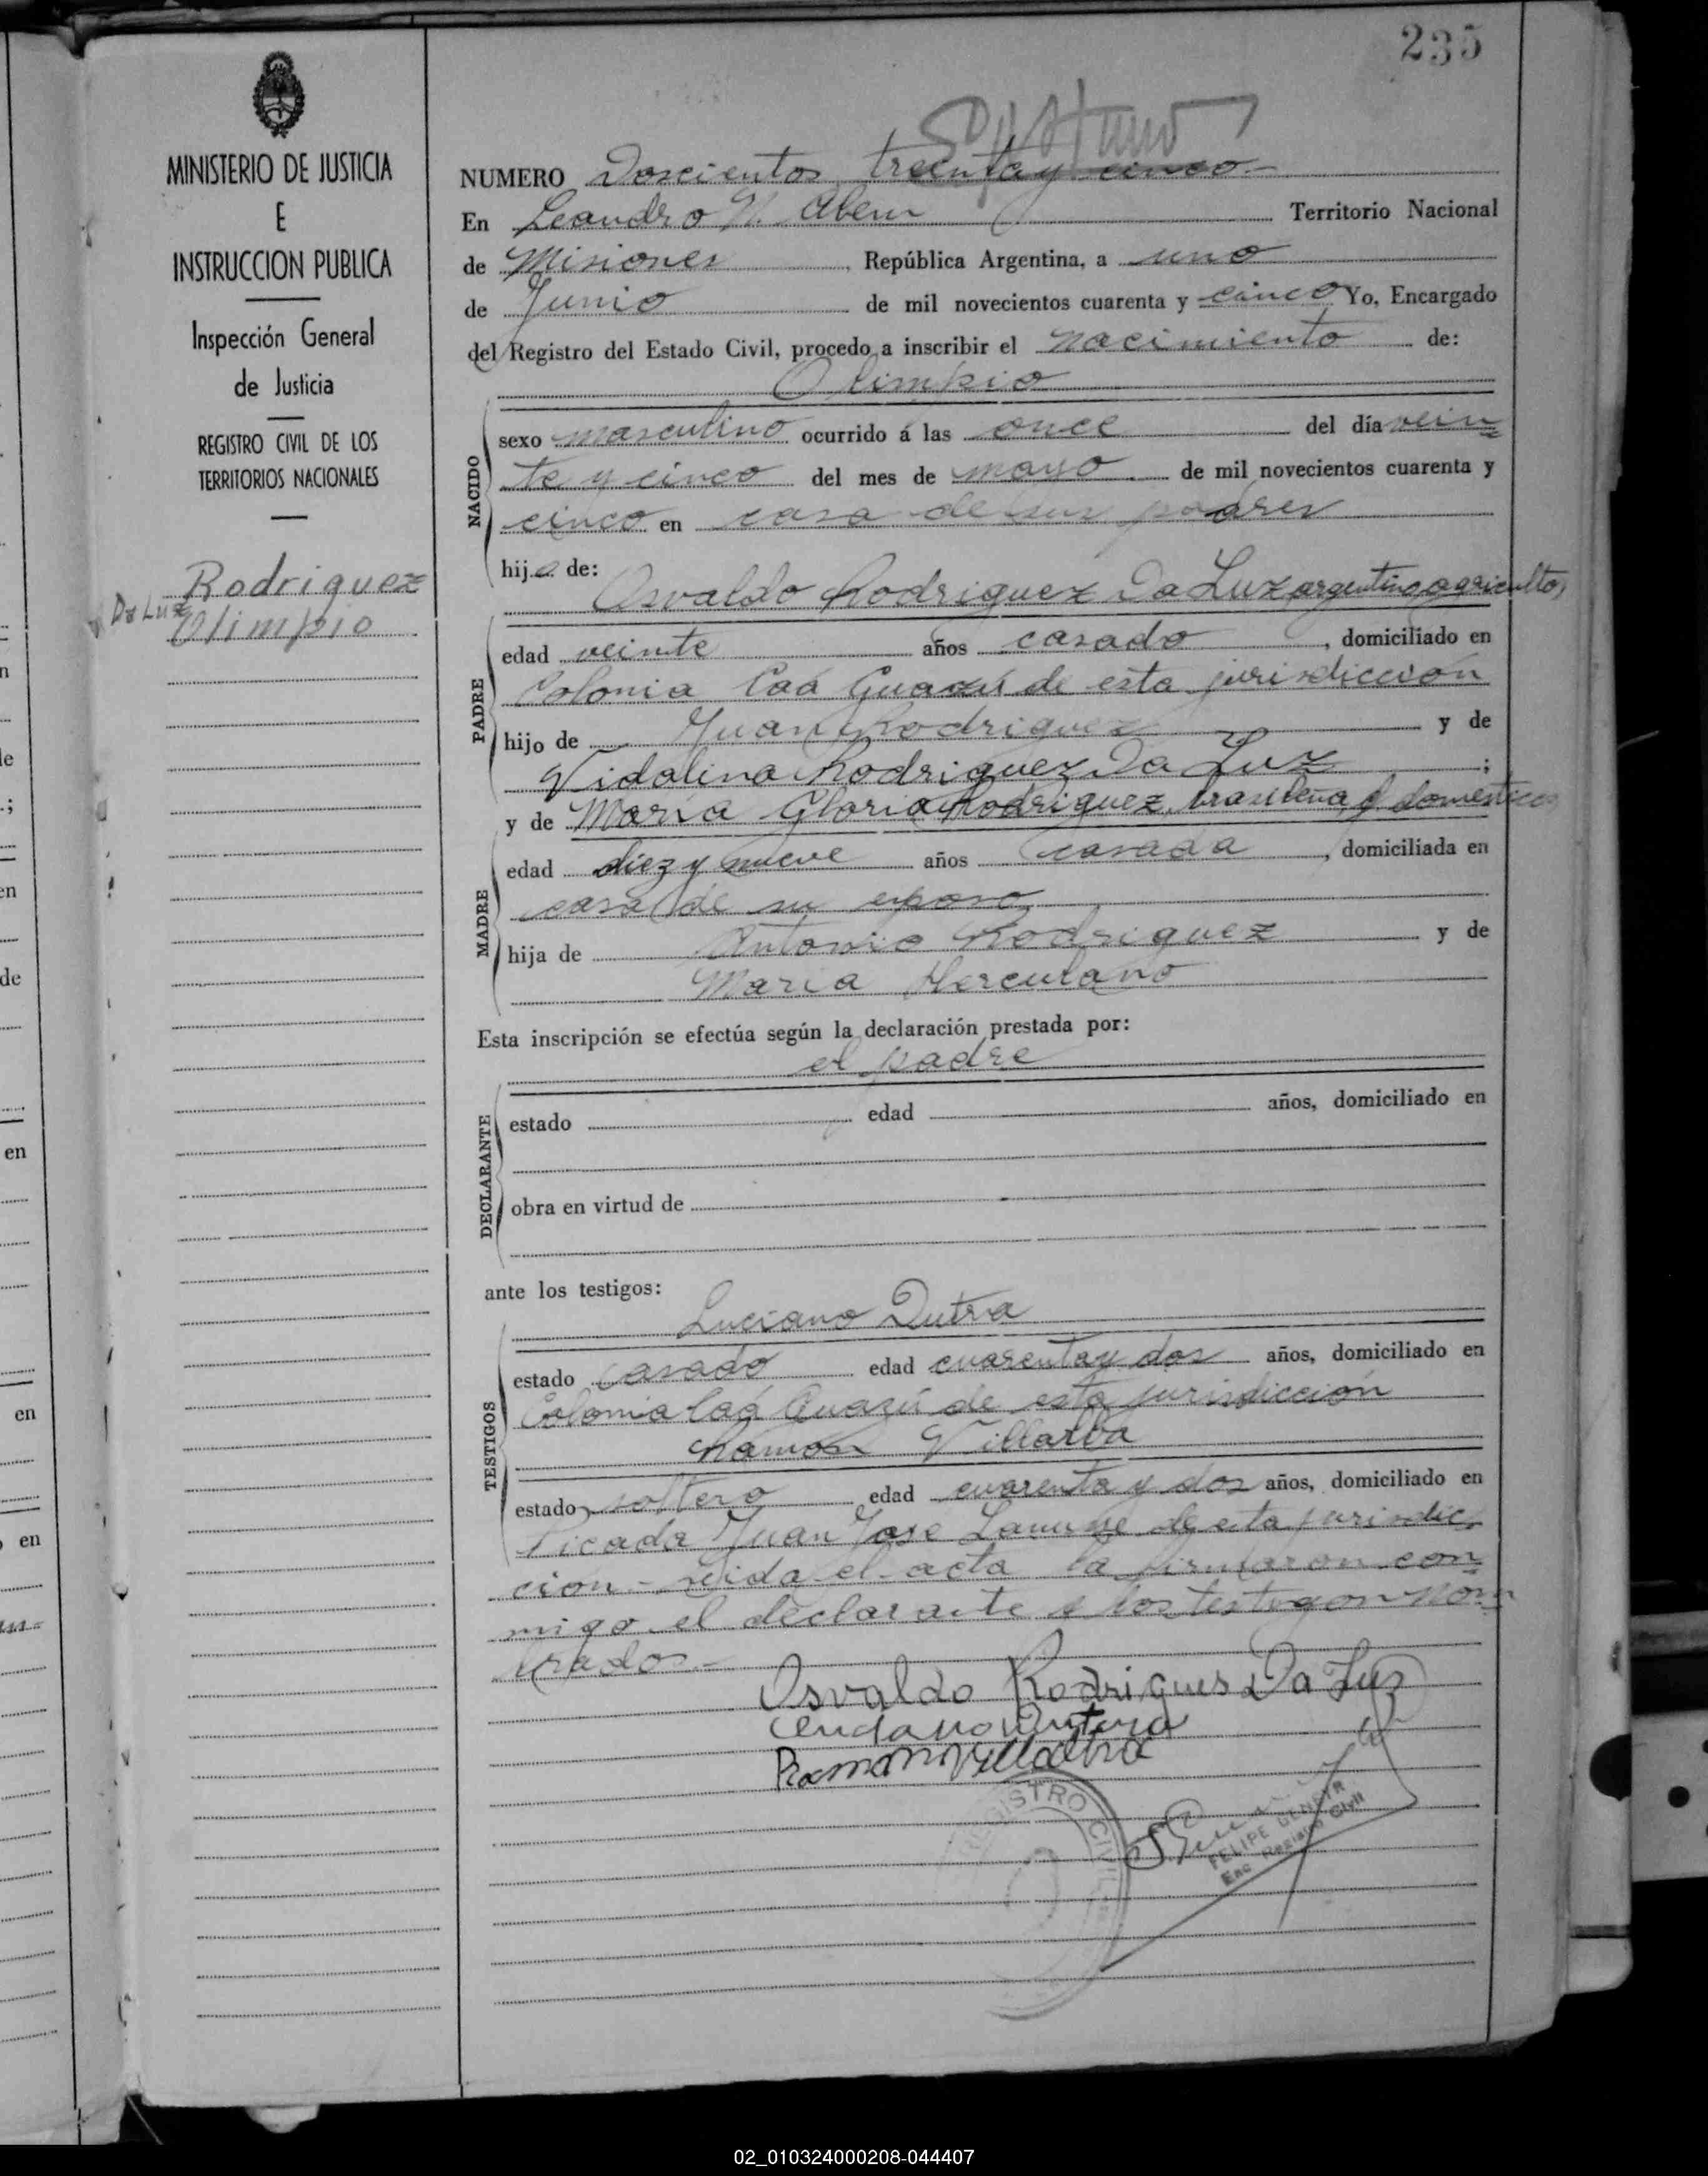 235
MINISTERIO DE JUSTICIA
E
INSTRUCCION PUBLICA
Inspección General
de Justicia
REGISTRO CIVIL DE LOS
TERRITORIOS NACIONALES
Rodriguez
Da Luz
Olimpio
NUMERO Doscientos treinta y cinco.-
En Leandro N. Alem Territorio Nacional
de Misiones, República Argentina, a uno
de Junio de mil novecientos cuarenta y cinco Yo, Encargado
del Registro del Estado Civil, procedo a inscribir el nacimiento de:
Olimpio
NACIDO
sexo masculino ocurrido á las once del día vein=
te y cinco del mes de mayo de mil novecientos cuarenta y
cinco en casa de sus padres
hijo de:
Osvaldo Rodriguez Da Luz argentino agricultor
PADRE
edad veinte años casado, domiciliado en
Colonia Caá Guazú de esta jurisdiccion
hijo de Juan Rodriguez y de
Vidalina Rodriguez Da Luz;
y de Maria Gloria Rodriguez, brasileña, domestica
MADRE
edad diez y nueve años casada, domiciliada en
casa de su esposo
hija de Antonio Rodriguez y de
Maria Herculano
Esta inscripción se efectúa según la declaración prestada por:
el padre
DECLARANTE
estado edad años, domiciliado en
obra en virtud de
ante los testigos:
Luciano Dutra
TESTIGOS
estado casado edad cuarenta y dos años, domiciliado en
Colonia Caá Guazú de esta jurisdicción
Ramon Villalba
estado soltero edad cuarenta y dos años, domiciliado en
Picada Juan Jose Lanusse de esta jurisdic=
cion.- leida el acta la firmaron con=
migo el declarante y los testigos nom=
brados.-
Osvaldo Rodrigues Da Luz
Ramon Villalba
REGISTRO CIVIL
FELIPE
Enc Registro Civil
02_010324000208-044407